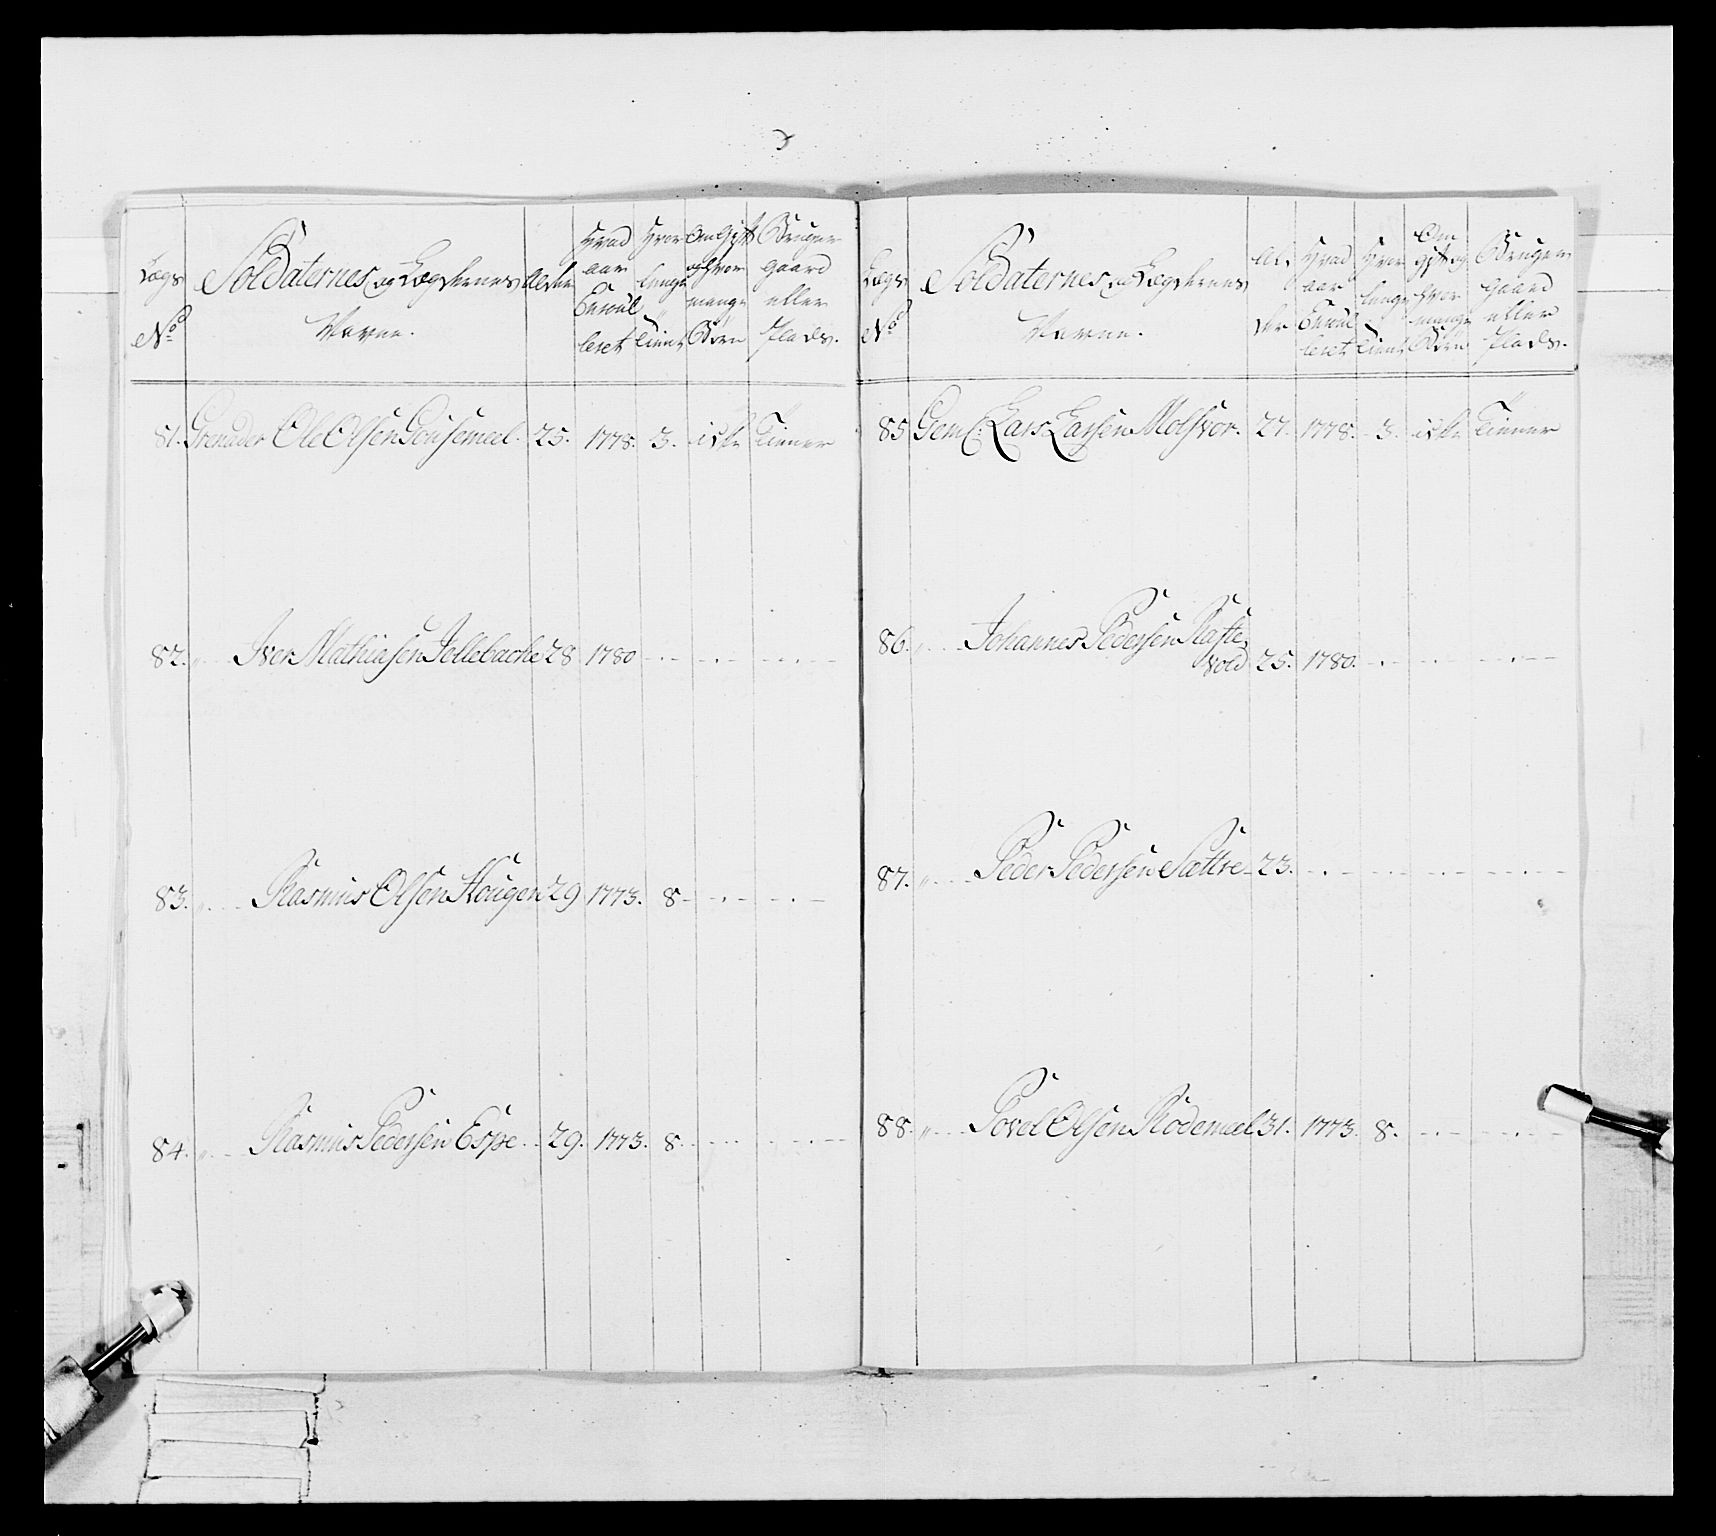 Lægs No
Soldaternes og Lægdernes Navne.
Alder
Hvad aar Enroulleret
Hvor lenge Tient
Om Gift og Hvor mange Børn
Bruger Gaard eller Plads.
81. Grenader Ole Olsen 25. 1778. 3. ikke Tiener
82. „ Iver Mathiasen Jellebache 28 1780
83. „ Rasmus Olsen Hougen 29 1773. 8
84. „ Rasmus Pedersen Espe 29. 1773. 8
Lægs No
Soldaternes og Lægdernes Navne.
Alder
Hvad aar Enroulleret
Hvor lenge Tient
Om gift og Hvor mange Børn
Bruger Gaard eller Plads.
85 Gem C: Lars Larsen Molsvor. 27. 1778. 3. ikke Tiener
86. „ Johannes Pedersen Rafte
vold 25. 1780.
87. „ Peder Pedersen Sættre 23.
88. „ Povel Olsen Rödemeel 31. 1773. 8.